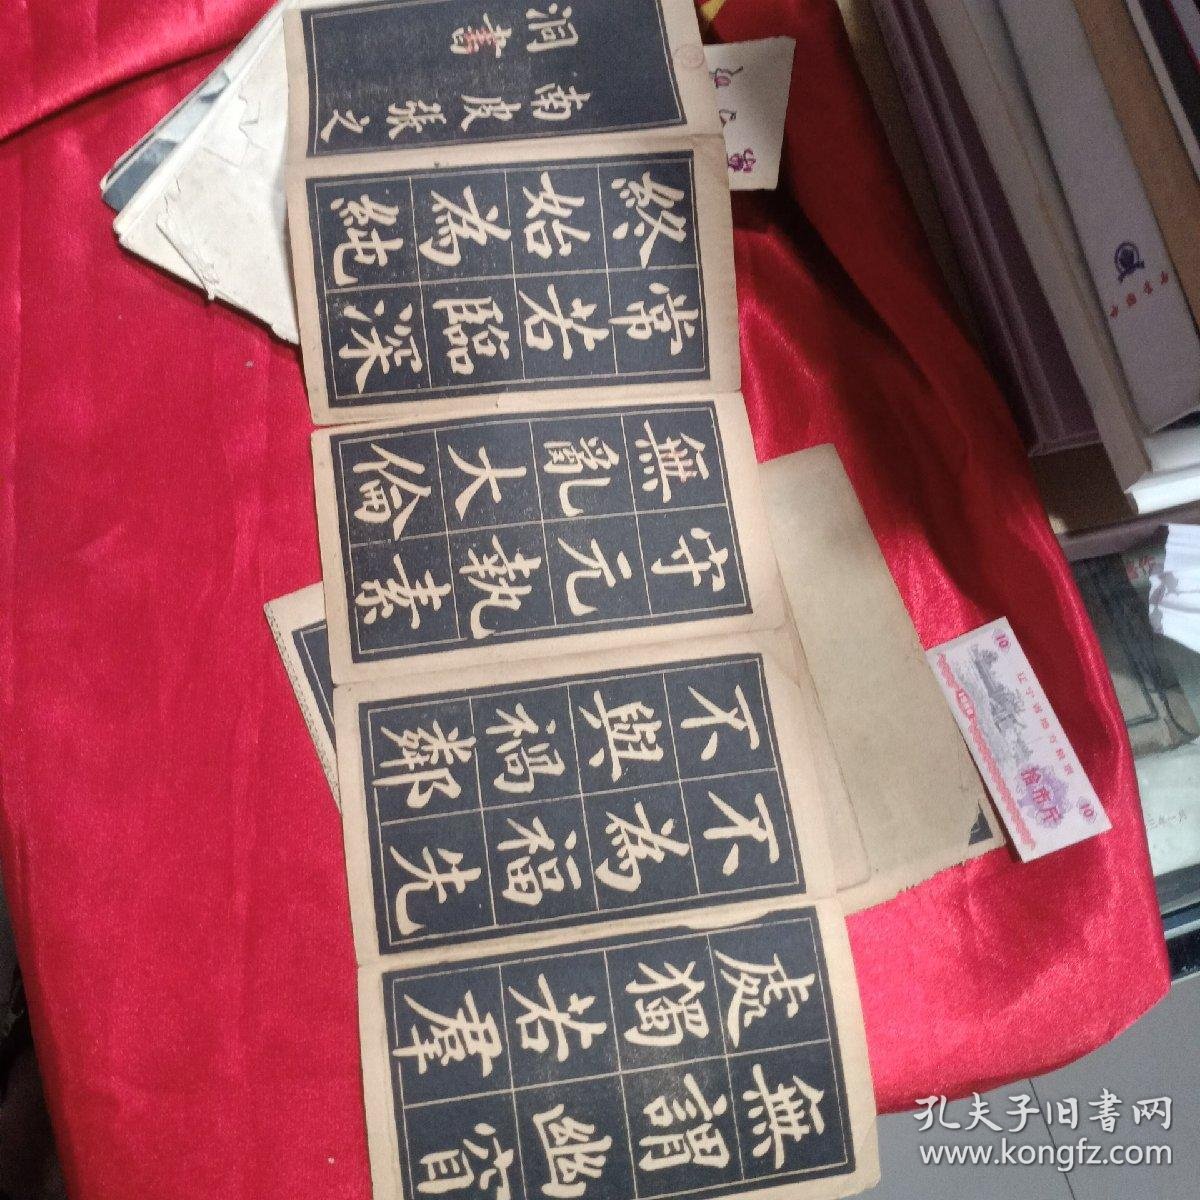 無謂幽冥
處獨若羣
不為福先
不與禍鄰
守元執素
無亂大倫
常若臨深
終始為純
南皮張之
洞書
辽宁省地方粮票
拾市斤
10
10
孔夫子旧书网
www.kongfz.com